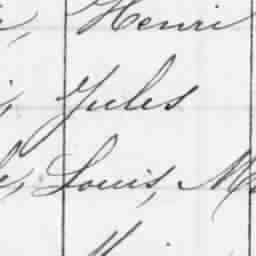 Henri
Jules
Louis, M